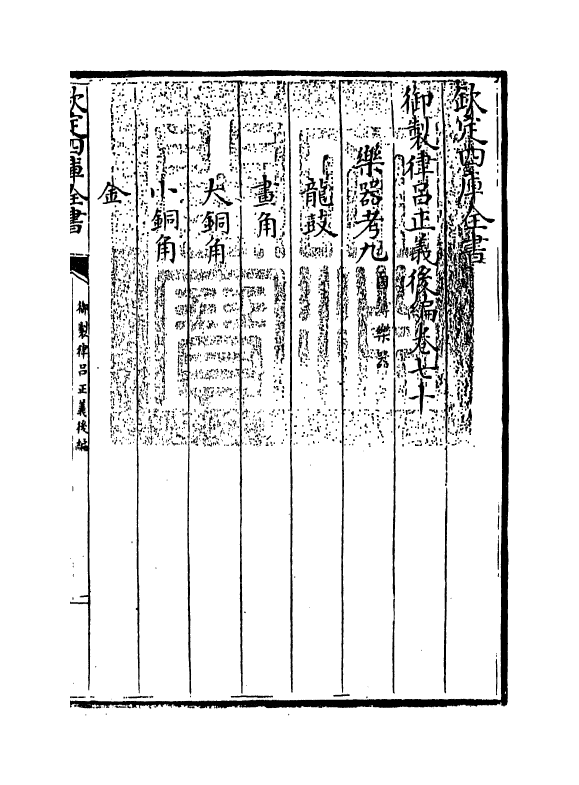 欽定四庫全書
御製律呂正義後編卷七十
樂器考九
龍鼓
畫角
大銅角
小銅角
金
欽定四庫全書
御製律呂正義後編